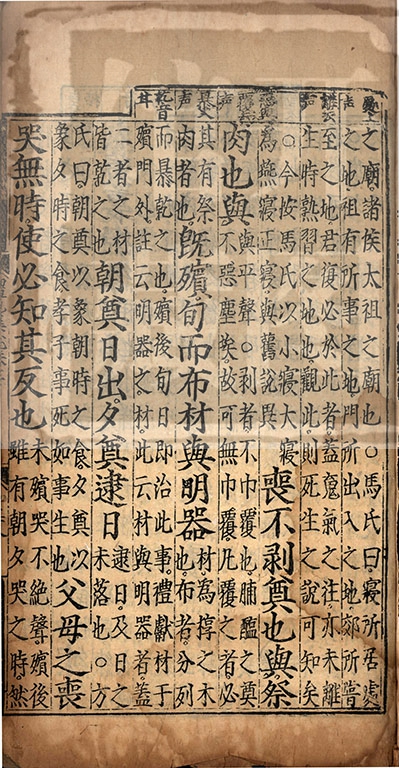 之廟諸侯太祖之廟也○馬氏曰寢所居處
之地祖有所事之地門所出入之地郊所嘗
至之地君復必於此者蓋魂氣之往亦未離
生時熟習之地也觀此則死生之說可知矣
○今按馬氏以小寢大寢
為燕寢正寢與舊說異
喪不剥奠也與祭
肉也與
與平聲○剥者不巾覆也脯醢之奠
不惡塵埃故可無巾覆凡覆之者必
其有祭
肉者也
既殯旬而布材與明器
材為椁之木
也布者分列
而暴乾之也殯後旬日即治此事禮獻材于
殯門外註云明器之材此云材與明器者蓋
二者之材
皆乾之也
朝奠日出夕奠逮日
逮日及日之
未落也○方
氏曰朝奠以象朝時之食夕奠以
象夕時之食孝子事死如事生也
父母之喪
哭無時使必知其反也
未殯哭不絕聲殯後
雖有朝夕哭之時然